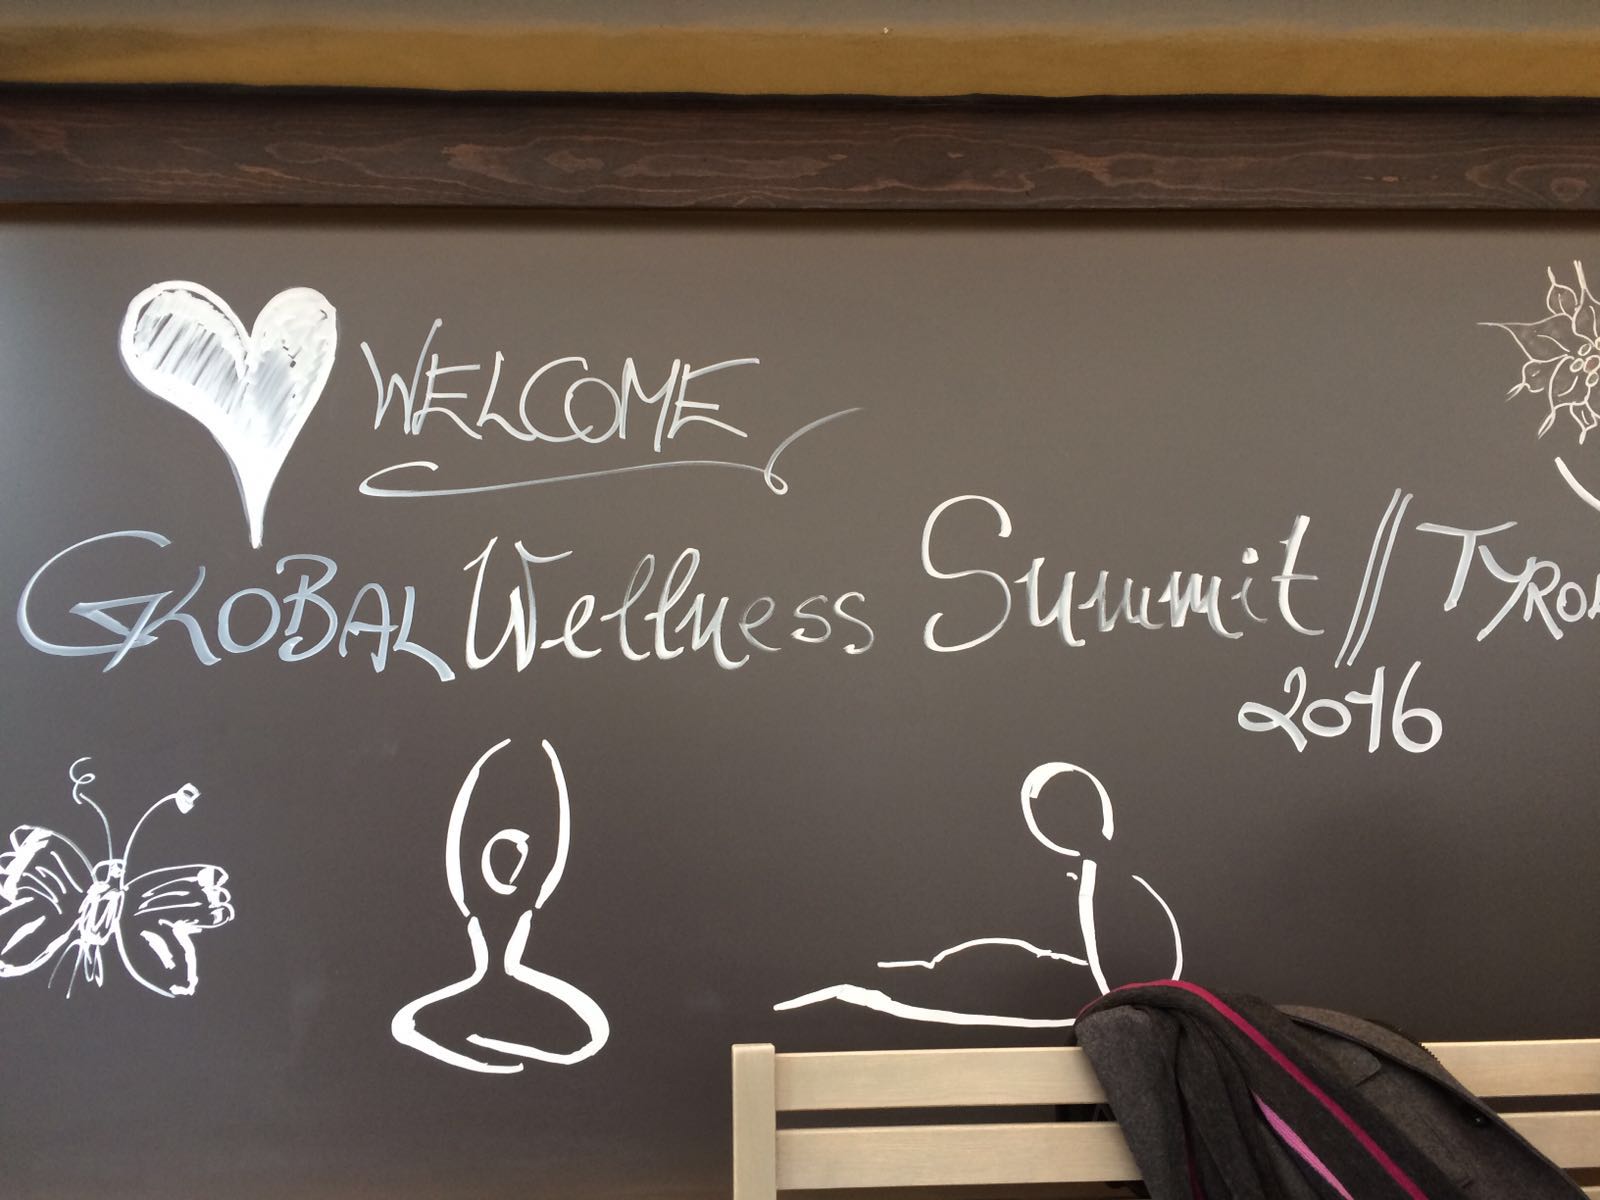 WELCOME
GLOBAL Wellness Summit // TYROL
2016